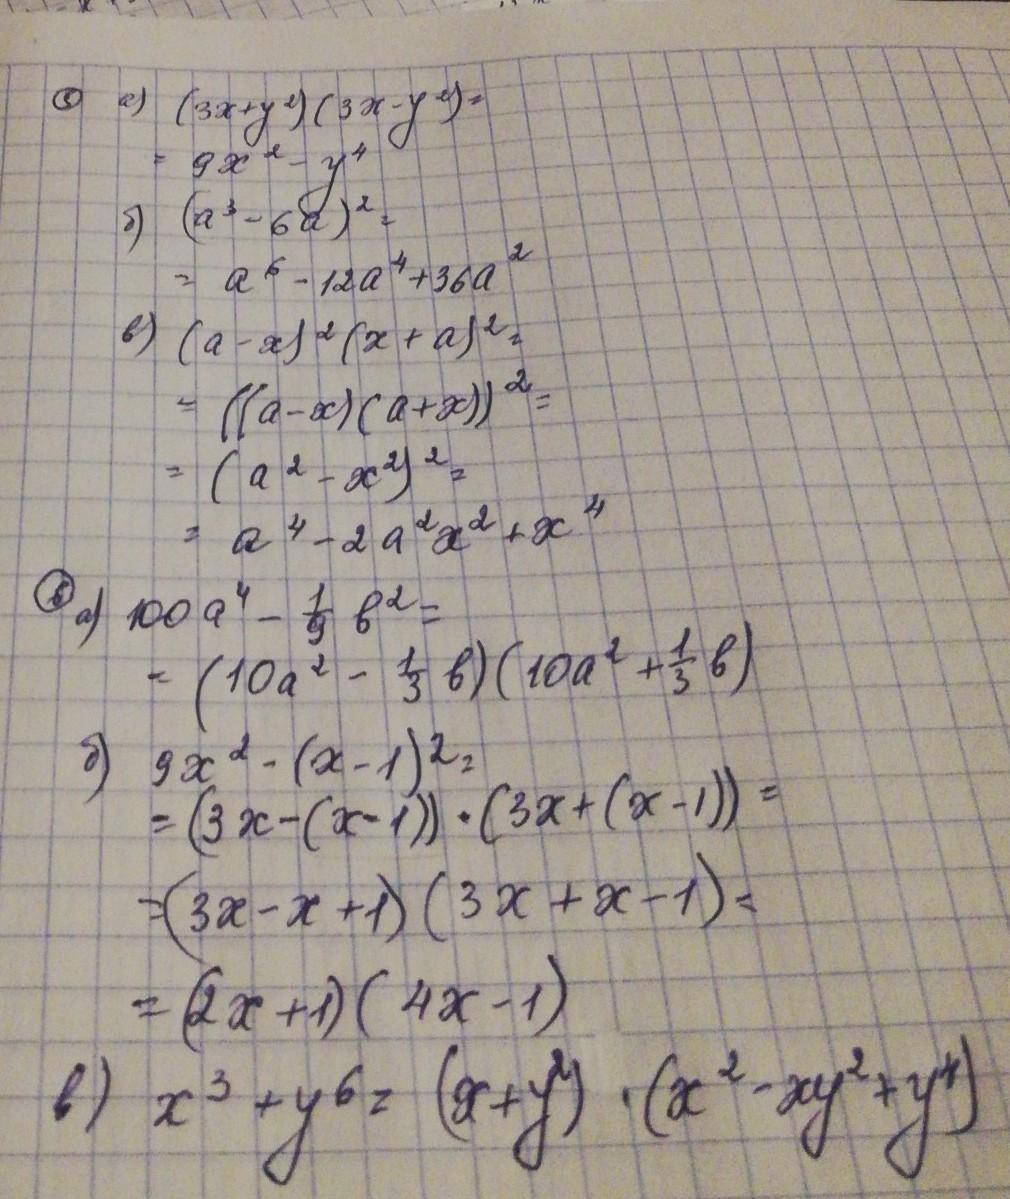 а) (3x+y²)(3x-y²)=
= 9x² - y⁴
б) (a³ - 6a)² =
= a⁶ - 12a⁴ + 36a²
в) (a - x)² (x + a)² =
= ((a-x)(a+x))² =
= (a² - x²)² =
= a⁴ - 2a²x² + x⁴
а) 100a⁴ - 1/9 b² =
= (10a² - 1/3 b)(10a² + 1/3 b)
б) 9x² - (x-1)² =
= (3x-(x-1)) · (3x+(x-1)) =
= (3x - x + 1)(3x + x - 1) =
= (2x+1)(4x-1)
в) x³ + y⁶ = (x+y²) · (x² - xy² + y⁴)